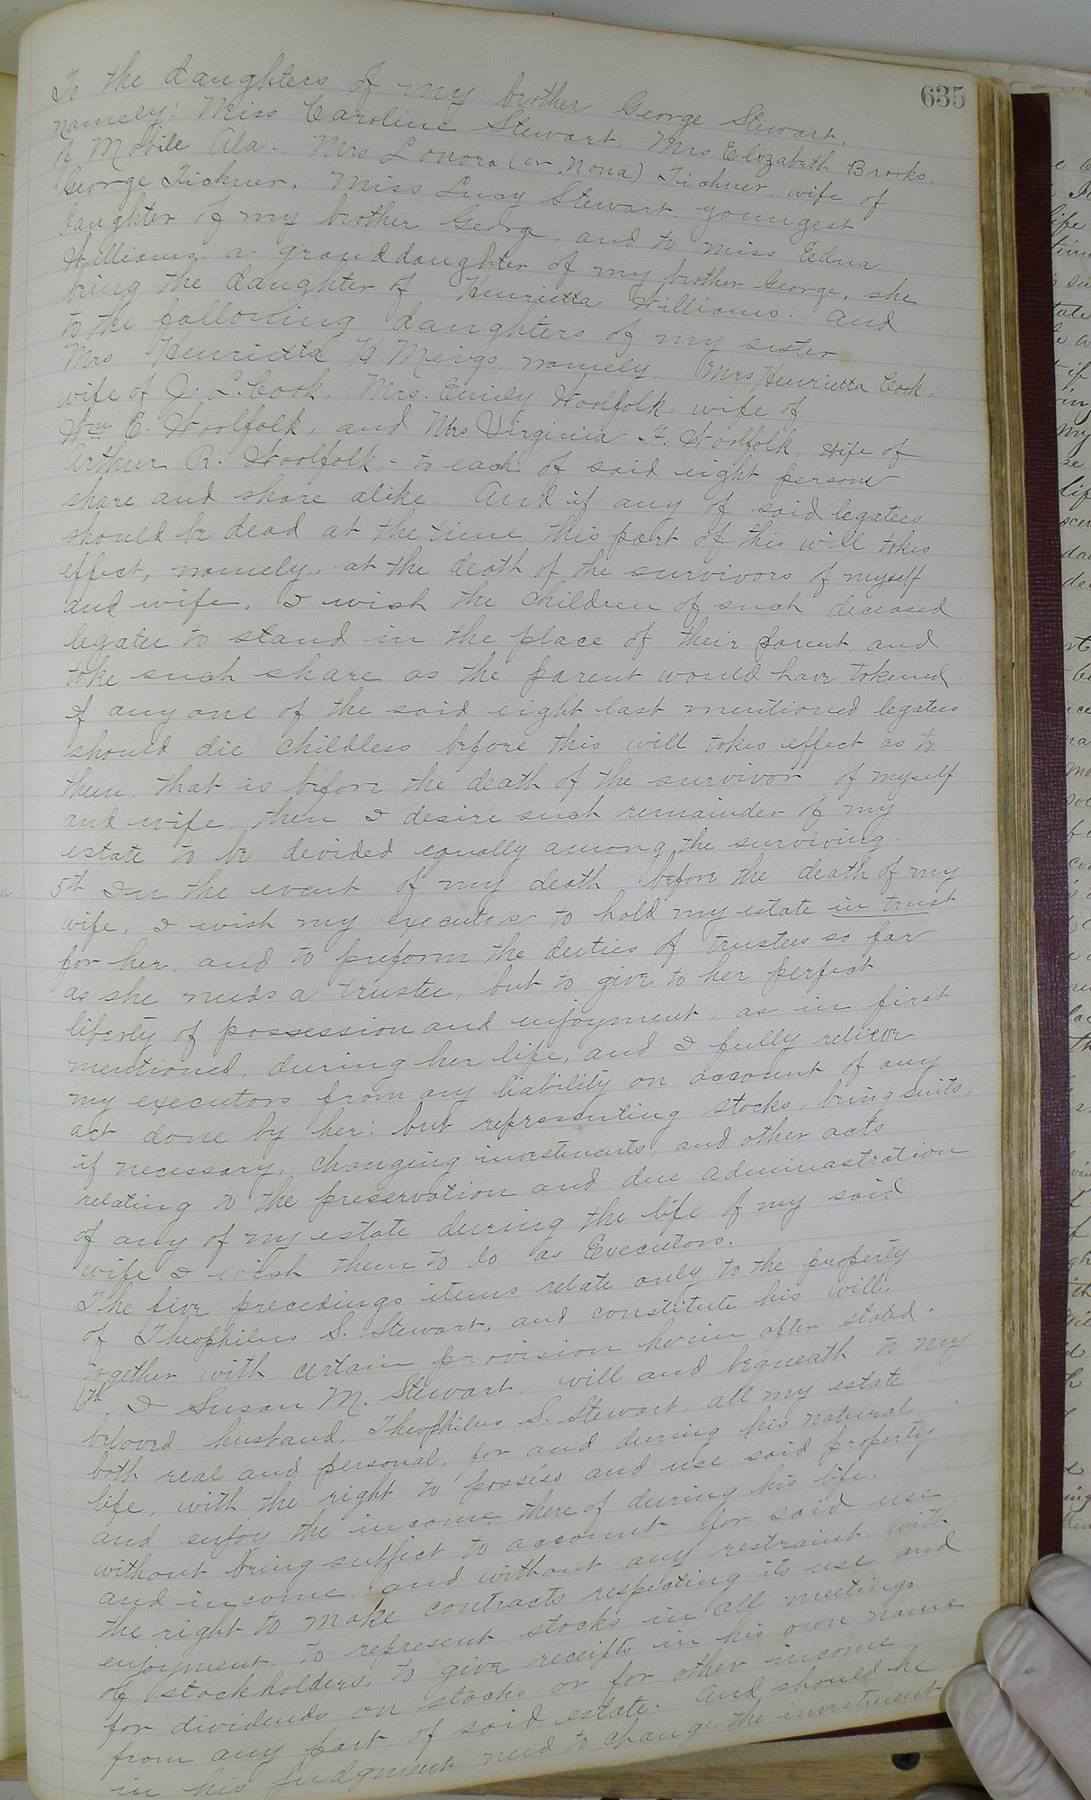 635
To the daughters of my brother George Stewart,
namely: Miss Caroline Stewart, Mrs Elizabeth Brooks,
Mobile Ala., Mrs Lonora (or Nona) Tichner, wife of
George Tichner, Miss Lucy Stewart, youngest
daughter of my brother George, and to Miss Edna
Williams, a granddaughter of my brother George, she
being the daughter of Henrietta Williams. And
to the following daughters of my sister
Mrs Henrietta H Meigs, namely, Mrs Henrietta Cook,
wife of J. L. Cook, Mrs. Emily Woolfolk, wife of
Wm E. Woolfolk, and Mrs Virginia F. Woolfolk, wife of
Arthur R. Woolfolk, - to each of said eight persons
share and share alike. And if any of said legatees
should be dead at the time this part of this will takes
effect, namely, at the death of the survivors of myself
and wife, I wish the children of such deceased
legatee to stand in the place of their parent and
take such share as the parent would have tokened.
If any one of the said eight last mentioned legatees
should die childless before this will takes effect as to
them, that is before the death of the survivor of myself
and wife, then I desire such remainder of my
estate to be devided equally among the surviving.
5th In the event of my death before the death of my
wife, I wish my executors to hold my estate in trust
for her, and to preform the duties of trustees so far
as she needs a trustee, but to give to her perfect
liberty of possession and enjoyment, as in first
mentioned, during her life, and I fully relieve
my executors from any liability on account of any
act done by her: but representing stocks, bring suits,
if necessary, changing investments, and other acts
relating to the preservation and due adminastration
of any of my estate during the life of my said
wife I wish them to do as Executors.
The five precedings items relate only to the property
of Theophilus S. Stewart, and constitute his will,
together with certain provision herein after stated.
6th I Susan M. Stewart, will and bequeath to my
beloved husband, Theophilus S. Stewart, all my estate
both real and personal, for and during his natural
life, with the right to possess and use said property
and enjoy the income thereof during his life,
without being subject to account for said use
and income, and without any restraint, with
the right to make contracts respecting its use and
enjoyment, to represent stocks in all meetings
of stockholders, to give receipts in his own name
for dividends on stocks or for other income
from any part of said estate. And should he
in his judgment need to change the investment